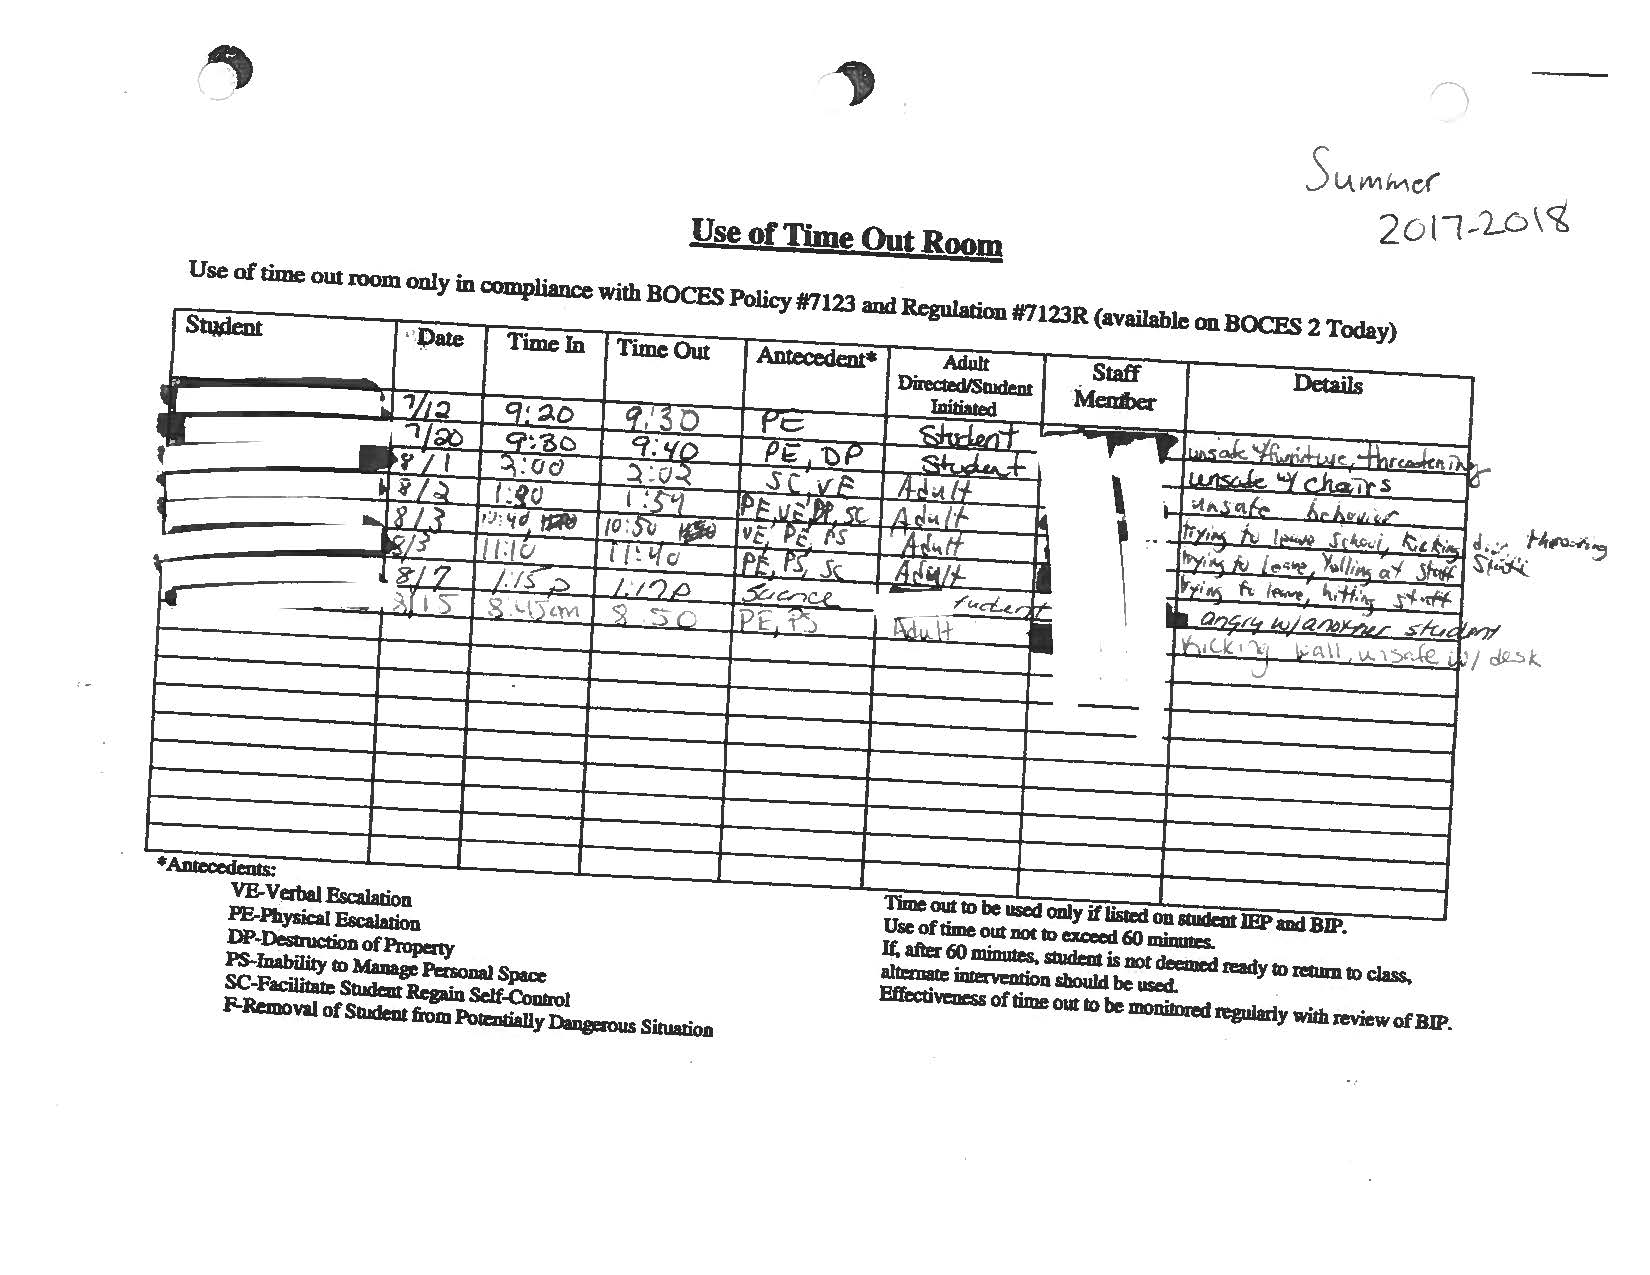 Summer
2017-2018
Use of Time Out Room
Use of time out room only in compliance with BOCES Policy #7123 and Regulation #7123R (available on BOCES 2 Today)
Student Date Time In Time Out Antecedent* Adult Directed/Student Initiated Staff Member Details
7/12 9:20 9:30 PE Student unsafe w/furniture, threatening
7/20 9:30 9:40 PE, DP Student unsafe w/ chairs
8/1 2:00 2:02 SC, VE Adult unsafe behavior
8/2 1:54 PE, VE, DP, SC Adult trying to leave school, kicking door threatening staff
8/3 10:40 10:50 VE, PE, PS Adult trying to leave, Yelling at staff
8/3 11:10 11:40 PE, PS, SC Adult trying to leave, hitting staff
8/7 1:15p 1:17p Science student angry w/another student
8/15 8:45am 8:50 PE, PS Adult kicking wall, unsafe w/ desk
*Antecedents:
VE-Verbal Escalation
PE-Physical Escalation
DP-Destruction of Property
PS-Inability to Manage Personal Space
SC-Facilitate Student Regain Self-Control
F-Removal of Student from Potentially Dangerous Situation
Time out to be used only if listed on student IEP and BIP.
Use of time out not to exceed 60 minutes.
If, after 60 minutes, student is not deemed ready to return to class,
alternate intervention should be used.
Effectiveness of time out to be monitored regularly with review of BIP.